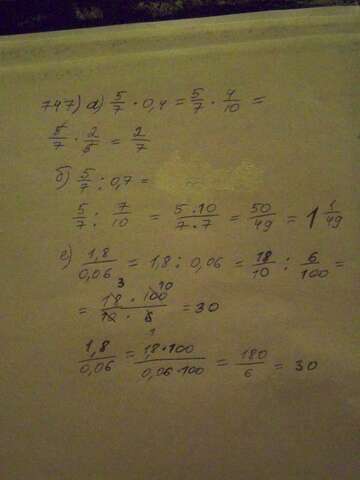 747) а) 5/7 · 0,4 = 5/7 · 4/10 =
5/7 · 2/5 = 2/7
б) 5/7 : 0,7 =
5/7 : 7/10 = 5·10/7·7 = 50/49 = 1 1/49
е) 1,8/0,06 = 1,8 : 0,06 = 18/10 : 6/100 =
= 18 · 100/10 · 6 = 30
1,8/0,06 = 1,8·100/0,06·100 = 180/6 = 30